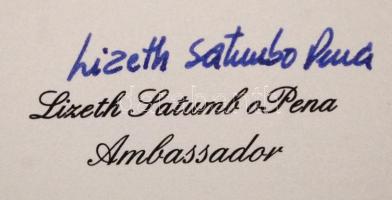 Lizeth Satumbo Pena
Lizeth Satumb oPena
Ambassador